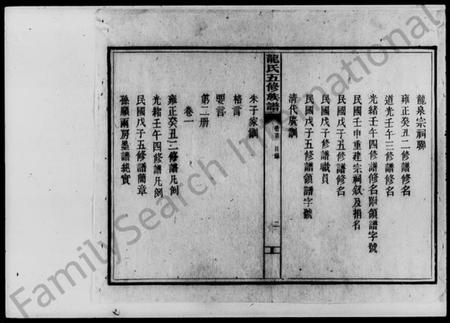 龍泉宗祠聯
雍正癸丑二修譜修名
道光壬午三修譜修名
光緒壬午四修譜修名附領譜字號
民國壬申重建宗祠敘及捐名
民國戊子五修譜修名
民國戊子修譜職員
民國戊子五修譜領譜字號
清代廣訓
龍氏五修族譜
卷首 目錄
二
朱子家訓
格言
要言
第二册
卷一
雍正癸丑二修譜凡例
光緒壬午四修譜凡例
民國戊子五修譜簡章
孫廟兩房墨譜紀實
FamilySearch International